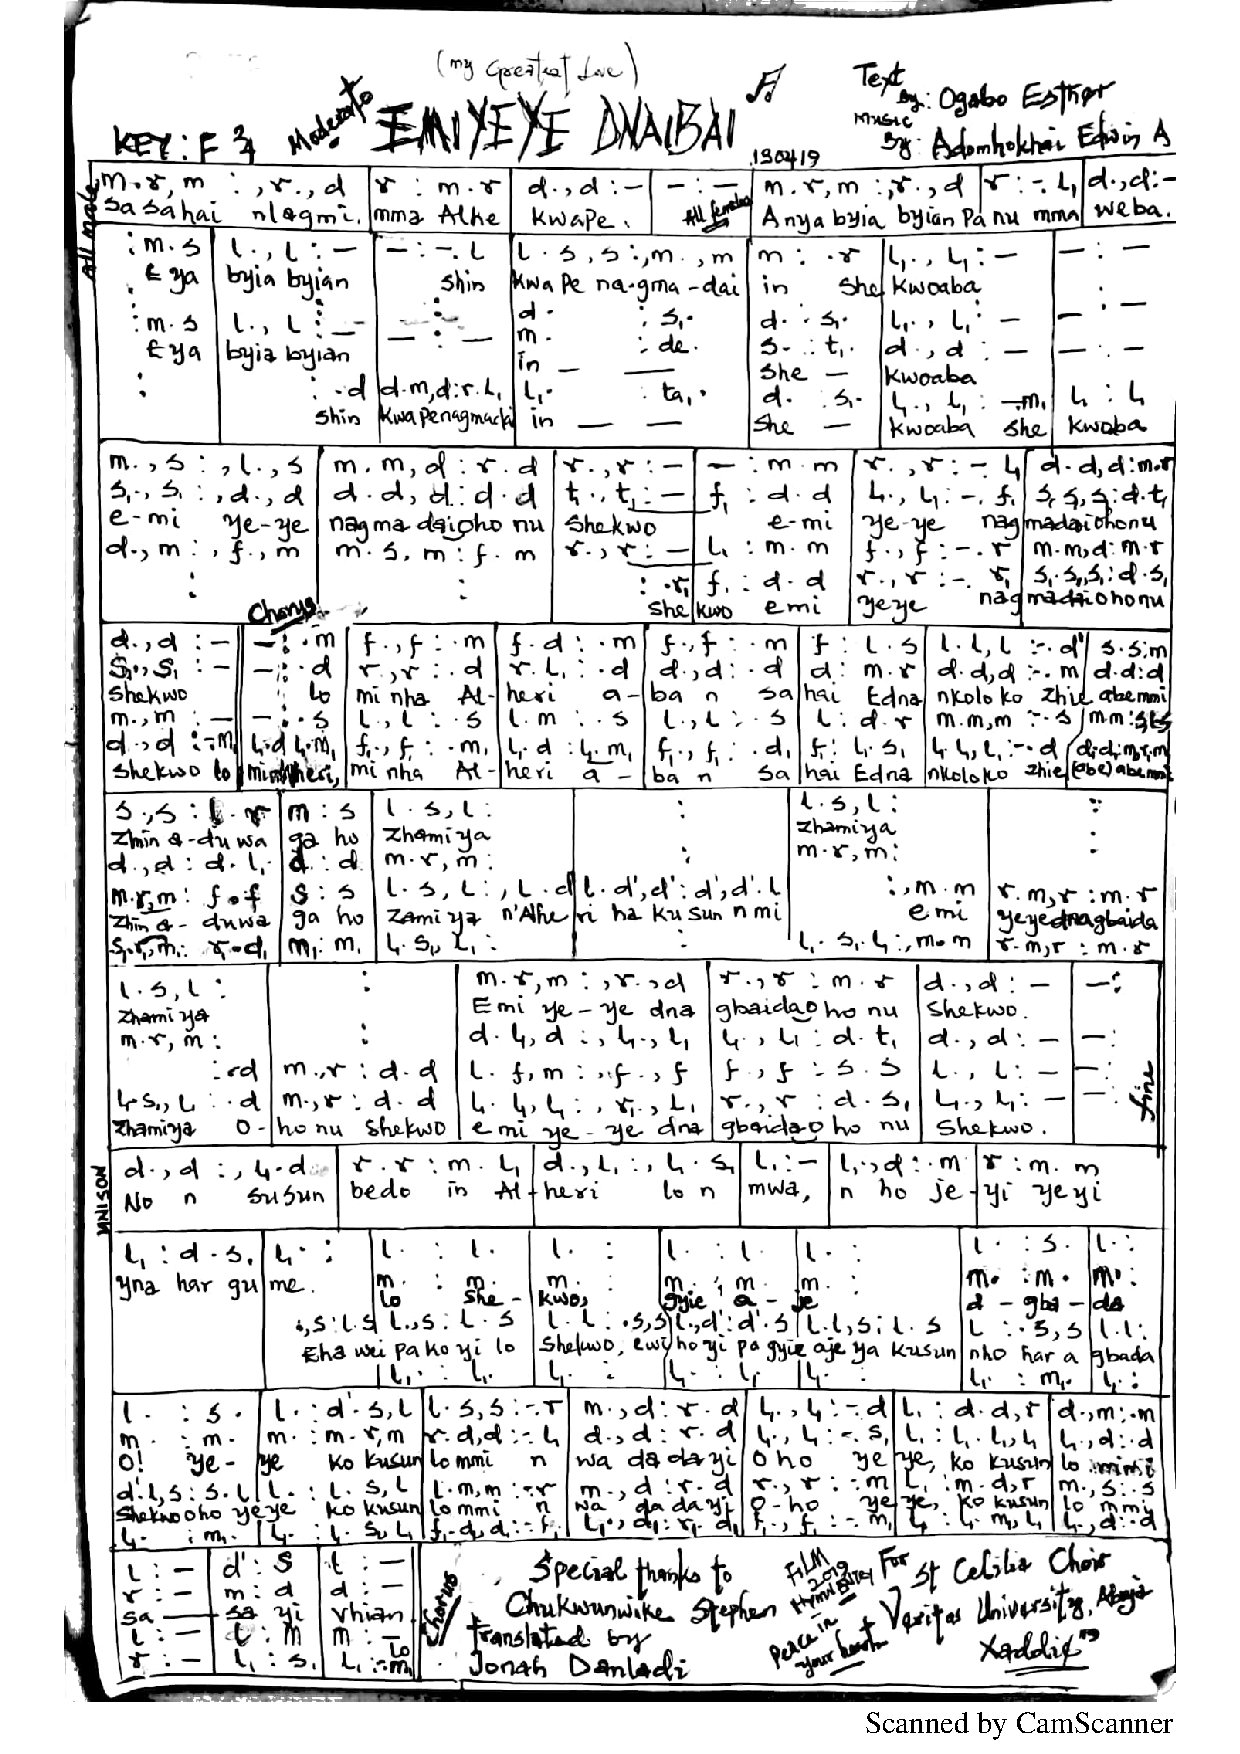 (my Greatest Love)
KEY: F 3/4 Moderato EMIYEYE DNAIBAI
Text By: Ogabo Esther
Music By: Adomhokhai Edwin A
130419
All male
m.r,m :,r.,d | r : m.r | d.,d:– | –:– | m.r,m:,r.,d | r:-.l₁ | d.,d:–
Sa sahai nlagmi. mma Alhe kwape. All females Anya byia byian pa nu mma weba.
:m.s | l.,l:– | –:–.l | l.s,s:,m.,m | m : .r | l₁.,l₁:– | –:–
Eya byia byian shin kwape na-gma-dai in she kwoaba
d. : s₁. | d. : s₁. | l₁.,l₁:– | –:–
:m.s | l.,l:– | –:– | m. : de. | s. : t₁. | d.,d:– | –:–
Eya byia byian in – – she – kwoaba
: | :.d | d.m,d:r.l₁ | l₁. : ta₁. | d. : s₁. | l₁.,l₁:–.m₁ | l₁:l₁
shin kwapenagmadai in – – she – kwoaba she kwoba
m.,s:,l.,s | m.m,d:r.d | r.,r:– | –:m.m | r.,r:-.l₁ | d.d,d:m.r
s₁.,s₁:,d.,d | d.d,d:d.d | t₁.,t₁:– | f₁:d.d | l₁.,l₁:-.f₁ | s₁.s₁,s₁:d.t₁
e-mi ye-ye nagma daioho nu shekwo e-mi ye-ye nagmadaiohonu
d.,m:,f.,m | m.s,m:f.m | r.,r:– | l₁:m.m | f.,f:-.r | m.m,d:m.r
: | : | :.r₁ | f₁:d.d | r.,r:-.r₁ | s₁.s₁,s₁:d.s₁
shekwo emi yeye nagmadaiohonu
Chorus
d.,d:– | –:.m | f.,f:.m | f.d:.m | f.,f:.m | f:l.s | l.l,l:-.d' | s.s:m
s₁.,s₁:– | –:.d | r.,r:.d | r.l₁:.d | d.,d:.d | d:m.r | d.d,d:-.m | d.d:d
shekwo lo mi nha Al-heri a-ba n sa hai Edna nkolo ko zhie abemmi
m.,m:– | –:.s | l.,l:.s | l.m:.s | l.,l:.s | l:d.r | m.m,m:-.s
d.,d:-.m₁ | l₁.d:l₁.m₁ | f₁.,f₁:.m₁ | l₁.d:l₁.m₁ | f₁.,f₁:.d₁ | f₁:l₁.s₁ | l₁.l₁,l₁:-.d
shekwo lo mi nha Al-heri a-ba n sa hai Edna nkoloko zhie (abe) abemmi
s.,s:l.r | m:s | l.s,l: | : | l.s,l: | :
Zhin a-duwa ga ho zhamiya zhamiya
d.,d:d.l₁ | d:d | m.r,m: | : | m.r,m: | :
m.r,m:f.f | s:s | l.s,l:,l.d | l.d',d':d',d'.l | :,m.m | r.m,r:m.r
Zhin a-duwa ga ho zamiya n'Alhe ri ha kusun n mi emi yeyednagbaida
m₁:m₁ | l₁.s₁,l₁: | : | l₁.s₁,l₁:,m.m | r.m,r:m.r
l.s,l: | : | m.r,m:,r.,d | r.,r:m.r | d.,d:– | –:
zhamiya Emi ye-ye dna gbaidao ho nu shekwo.
m.r,m: | : | d.l₁,d:,l₁.,l₁ | l₁.,l₁:d.t₁ | d.,d:– | –:–
:.d | m.,r:d.d | l.f,m:,f.,f | f.,f:s.s | l.,l:– | –:–
l₁.s₁,l₁:.d | m.,r:d.d | l₁.l₁,l₁:,r₁.,l₁ | r.,r:d.s₁ | l₁.,l₁:– | –:
zhamiya O-ho nu shekwo emi ye-ye dna gbaidao ho nu shekwo.
fine
UNISON
d.,d:,l₁.d | r.r:m.l₁ | d.,l₁:,l₁.s₁ | l₁:– | l₁.,d:.m | r:m.m
No n susun bedo in Al-heri lo n mwa, n ho je-yi yeyi
l₁:d.s₁ | l₁.: | l.:l. | l.: | l.:l. | l.: | l.:s. | l.:
yna har gu me.
m.:m. | m.: | m.:m. | m.: | m.:m. | m.:
lo she- kwo, gyie a-je d-gba-da
.,s:l.s | l.,s:l.s | l.l:.s,s | l.,d':d'.s | l.l,s:l.s | l:.s,s | l.l:
Eha wei pa ko yi lo shekwo, ewi ho yi pa gyie aje ya kusun nho har a gbada
l₁.:l₁. | l₁.: | l₁.:l₁. | l₁.: | l₁.:m₁. | l₁.:
l.:s. | l.:d'.s,l | l.s,s:-.r | m.,d:r.d | l₁.,l₁:-.d | l₁:d.d,r | d.,m:.m
m.:m. | m.:m.r,m | r.d,d:-.l₁ | d.,d:r.d | l₁.,l₁:-.s₁ | l₁:l₁.l₁,l₁ | l₁.,d:.d
O! ye-ye ko kusun lo mmi n wa da da yi O ho ye ye, ko kusun lo mimi
d'.l,s:s.l | l.:l.s,l | l.m,m:-.r | m.,d:r.d | r.,r:.m | l₁:m.d,r | m.,s:.s
shekwooho yeye ko kusun lo mmi n wa da da yi O-ho ye ye, ko kusun lo mmi
l₁.:m₁. | l₁.:l₁.s₁,l₁ | f₁.d₁,d₁:-.f₁ | l₁.,d₁:r₁.d₁ | f₁.,f₁:-.m₁ | l₁:l₁.m₁,l₁ | l₁.,d:.d
l:– | d':s | l:–
r:– | m:d | d:–
sa – sa yi vhian
l:– | l:m | m:– lo
r:– | l₁:s₁ | l₁:-.m₁
Chorus
Special thanks to
Chukwunwike Stephen
translated by
Jonah Danladi
FILM 2019
Peace in your heart
For St Cecilia Choir
Veritas University, Abuja
Xaddix
Scanned by CamScanner